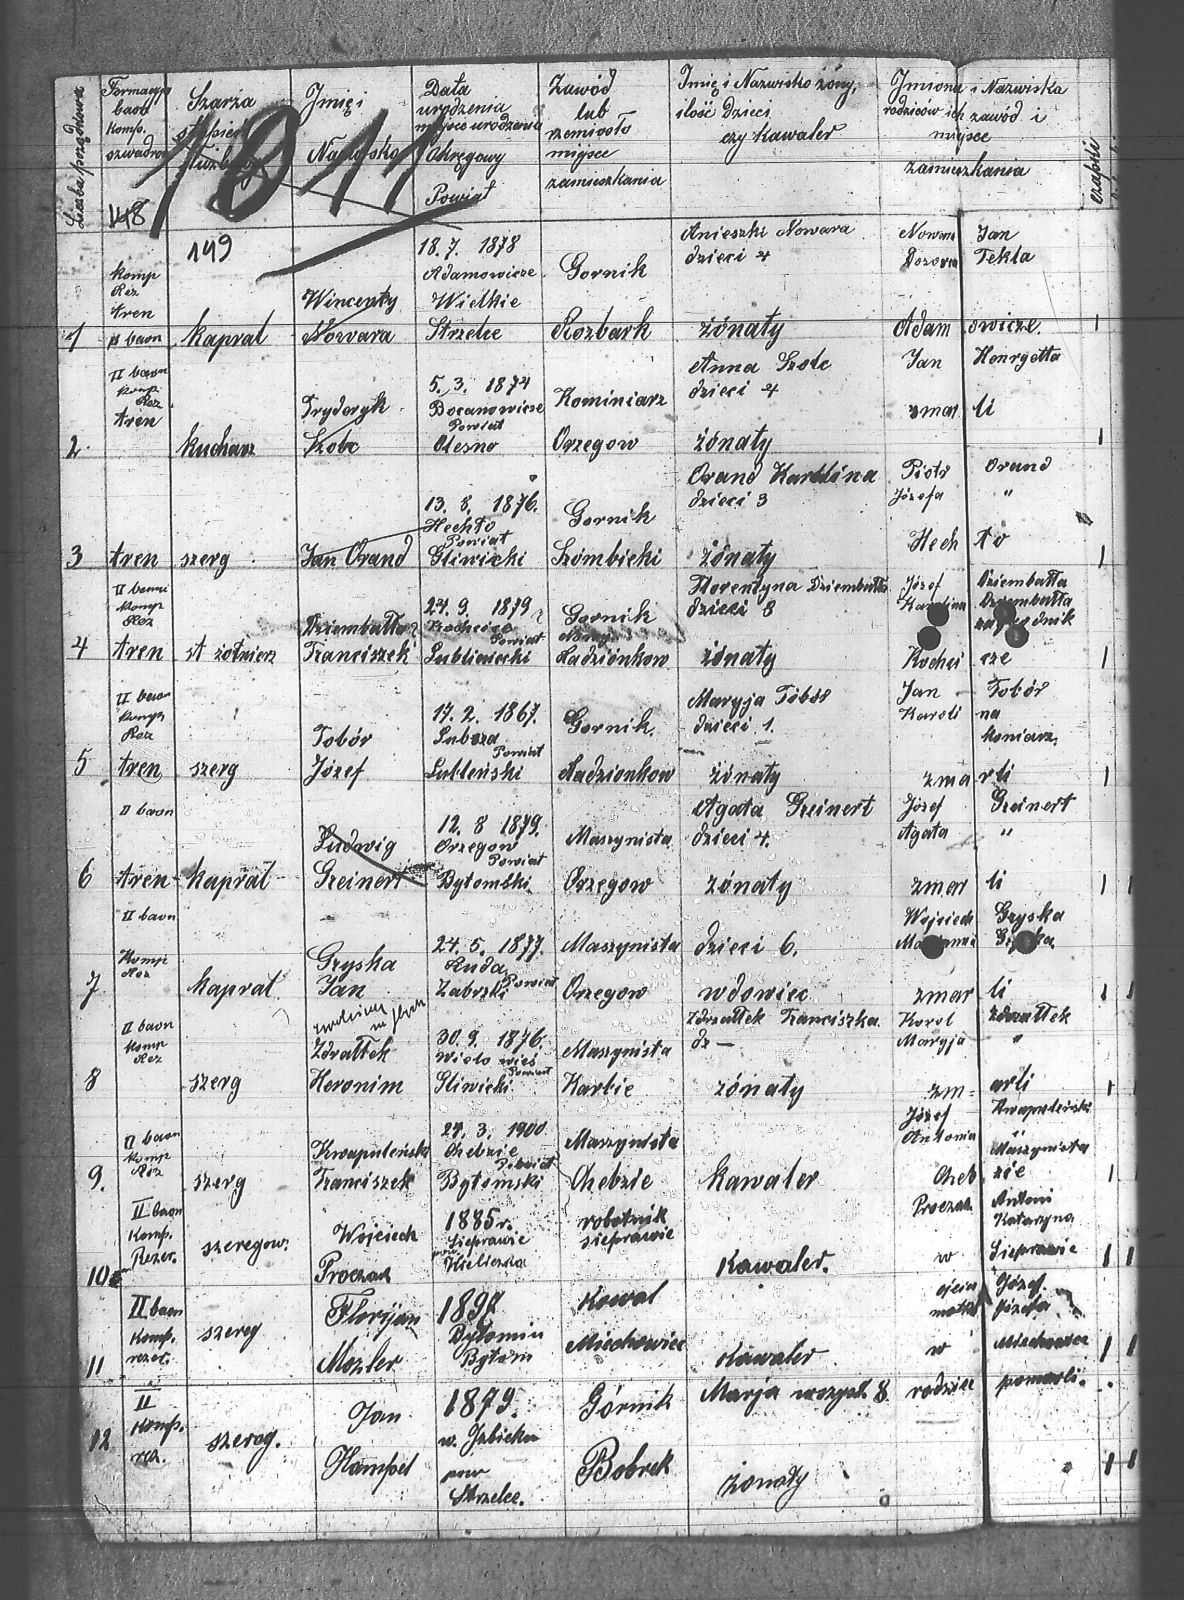 Liczba porządkowa
Formacya
baon
Komp.
szwadron
148
Szarża
stopień
149
1011
Imię i
Nazwisko
Data
urodzenia
miejsce urodzenia
Okręgowy
Powiat
Zawód
lub
rzemiosło
miejsce
zamieszkania
Imię i Nazwisko żony,
ilość Dzieci
czy Kawaler
Imiona i Nazwiska
rodziców ich zawód i
miejsce
zamieszkania
czapki
1 Komp Rez tren II baon
Kapral
Wincenty
Nowara
18. 7. 1878
Adamowicze
Wielkie
Strzelce
Gornik
Rozbark
Anieszki Nowara
dzieci 4
żónaty
Nowara Jan
Tekla
Adam owicze
2. II baon Komp Rez. tren
Kucharz
Fryderyk
Szobc
5. 3. 1874
Bocanowicze
Powiat
Olesno
Kominiarz
Orzegow
Anna
dzieci 4
żónaty
Jan Henrgetta
zmar li
3 tren
szerg.
Jan Orand
13. 8. 1876.
Hechło
Powiat
Gliwicki
Gornik
Szombieki
Orand Karolina
dzieci 3
żónaty
Piotr Orand
Józefa "
Hech ło
4 II baon Komp Rez tren
st żołnierz
Dziembałła
Franciszek
24. 9. 1879
Kochcice
Powiat
Lubliniecki
Gornik
Nowy
Radzionkow
Florentyna Dziembałła
dzieci 8
żónaty
Józef Dziembałła
Karolina Dziembałła
Kochci cze
5 II baon Komp Rez tren
szerg
Tobór
Józef
17. 2. 1867.
Lubsza
Powiat
Lubleński
Gornik.
Radzionkow
Maryja Tobór
dzieci 1.
żónaty
Jan Tobór
Karoli na
koniarz.
zma rli
6 II baon tren
Kapral
Ludwig
Greinert
12. 8 1879.
Orzegow
Powiat
Bytomski
Maszynista
Orzegow
Agata Greinert
dzieci 4.
żónaty
Józef Greinert
Agata "
zmar li
7 II baon Komp Rez
Kapral
Gryska
Jan
24. 5. 1877.
Ruda
Powiat
Zabrzki
Maszynista
Orzegow
dzieci 6.
wdowiec
Wojciech Gryska
Maryanna Gryska
zmar li
8 II baon Komp Rez
szerg
Zdrałłek
Heronim
30. 9. 1876.
Wielo wieś
Powiat
Gliwicki
Maszynista
Karbie
Zdrzałłek Franciszka
dz —
żónaty
Karol Zdrzałłek
Maryja "
zm- arli
9. II baon Komp Rez
szerg
Kwapuleński
Franciszek
27. 3. 1900
Chebzie
Powiat
Bytomski
Maszynista
Chebzie
Kawaler
Józef Kwapuleński
Antonia "
Maszynista
Cheb zie
10 II baon Komp. Rezer.
szeregow.
Wojciech
Proczak
1885 r.
Sieprawie
Wieliczka
robotnik
sieprawie
Kawaler.
Proczak Antoni
Katarzyna
w Sieprawie
11 II baon Komp. rezer.
szereg
Floryjan
Mozler
1897
Bytomiu
Bytom
Kowal
Miechowice
Kawaler
ojcia Józef
matka Józefa
w Miechowice
12 II Komp. rez.
szereg.
Jan
Hampel
1879.
w. Izbicku
pow
Strzelce.
Górnik
Bobrek
Marja 8
żonaty
rodzice pomarli.